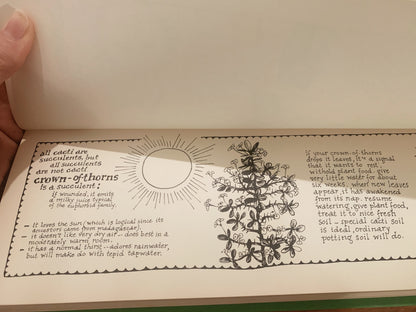 all cacti are
succulents, but
all succulents
are not cacti
crown-of-thorns
is a succulent;
if wounded, it emits
a milky juice typical
of the euphorbia family.
- it loves the sun (which is logical since its
ancestors came from madagascar).
- it doesn't like very dry air - does best in a
moderately warm room.
- it has a normal thirst - adores rainwater,
but will make do with tepid tapwater.
if your crown-of-thorns
drops its leaves, it's a signal
that it wants to rest.
withold plant food. give
very little water for about
six weeks. when new leaves
appear, it has awakened
from its nap. resume
watering, give plant food,
treat it to nice fresh
soil - special cacti soil
is ideal, ordinary
potting soil will do.